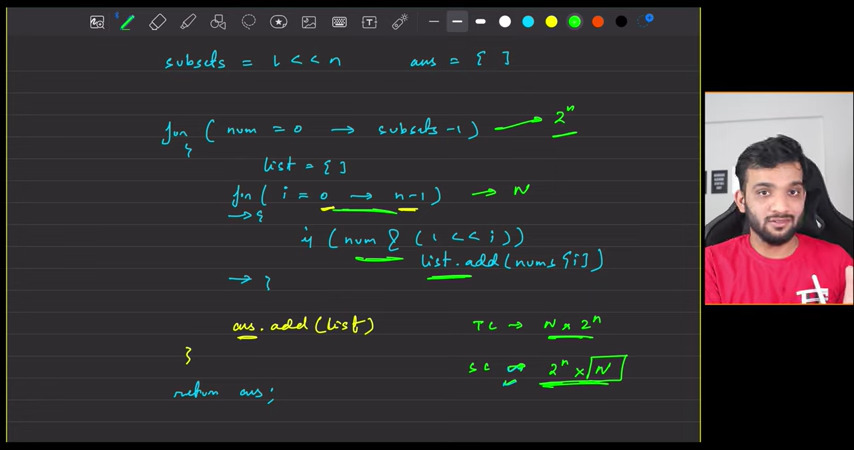 subsets = 1 << n     ans = { }
for ( num = 0 → subsets -1 ) → 2^n
{
list = { }
for ( i = 0 → n-1 ) → N
→ {
if ( num & ( 1 << i ) )
list.add(nums[i])
→ }
ans.add(list)     TC → N x 2^n
}
SC → 2^n x N
return ans;